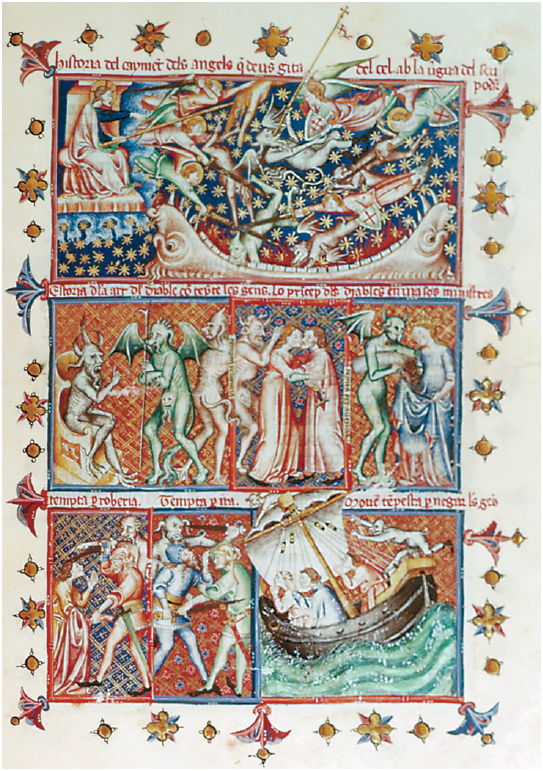 historia del caymet dels angels q̃ deus gita del cel ab la uigua del seu
poder
Estoria d̃la art del diable cõ tẽpte les gens. Lo prĩcep dels diables enuia sos ministres
tempta ꝑ roberia. Tempta ꝑ ira. Mouẽ tẽpesta ꝑ negar les gẽs